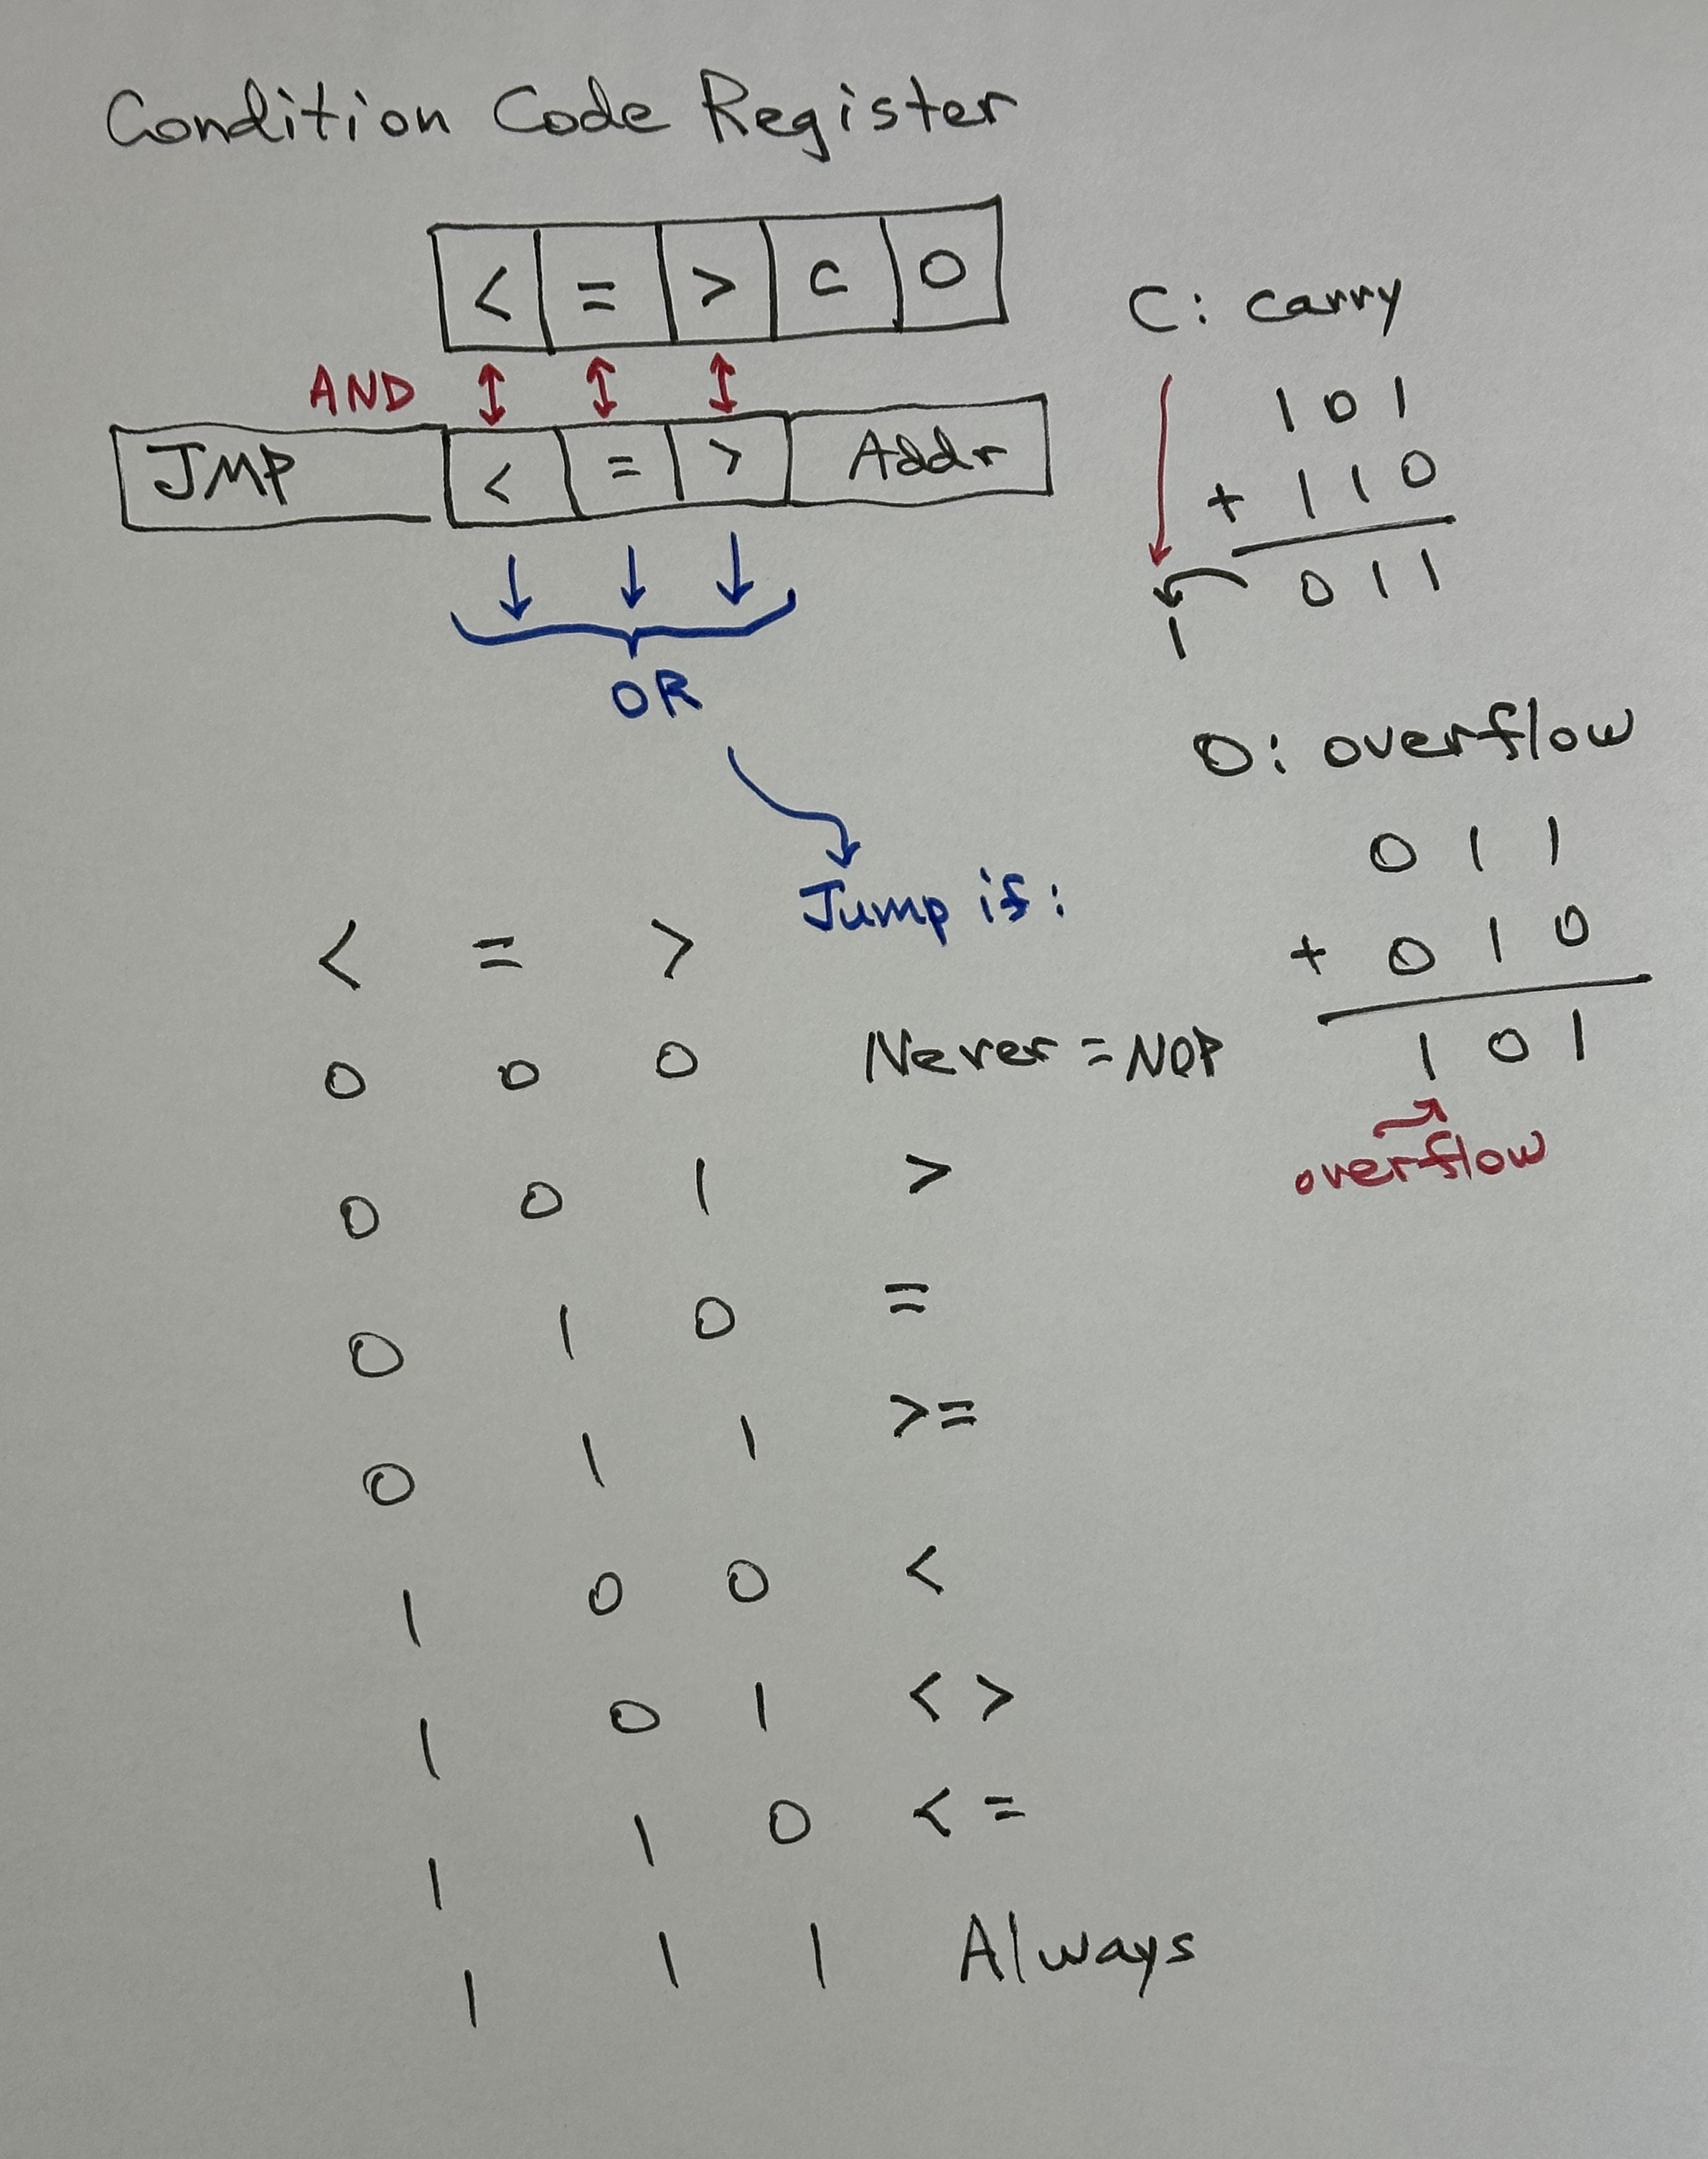 Condition Code Register
< = > C O
AND
JMP < = > Addr
OR
Jump if:
< = >
0 0 0 Never = NOP
0 0 1 >
0 1 0 =
0 1 1 >=
1 0 0 <
1 0 1 < >
1 1 0 < =
1 1 1 Always
C: carry
1 0 1
+ 1 1 0
0 1 1
1
O: overflow
0 1 1
+ 0 1 0
1 0 1
overflow